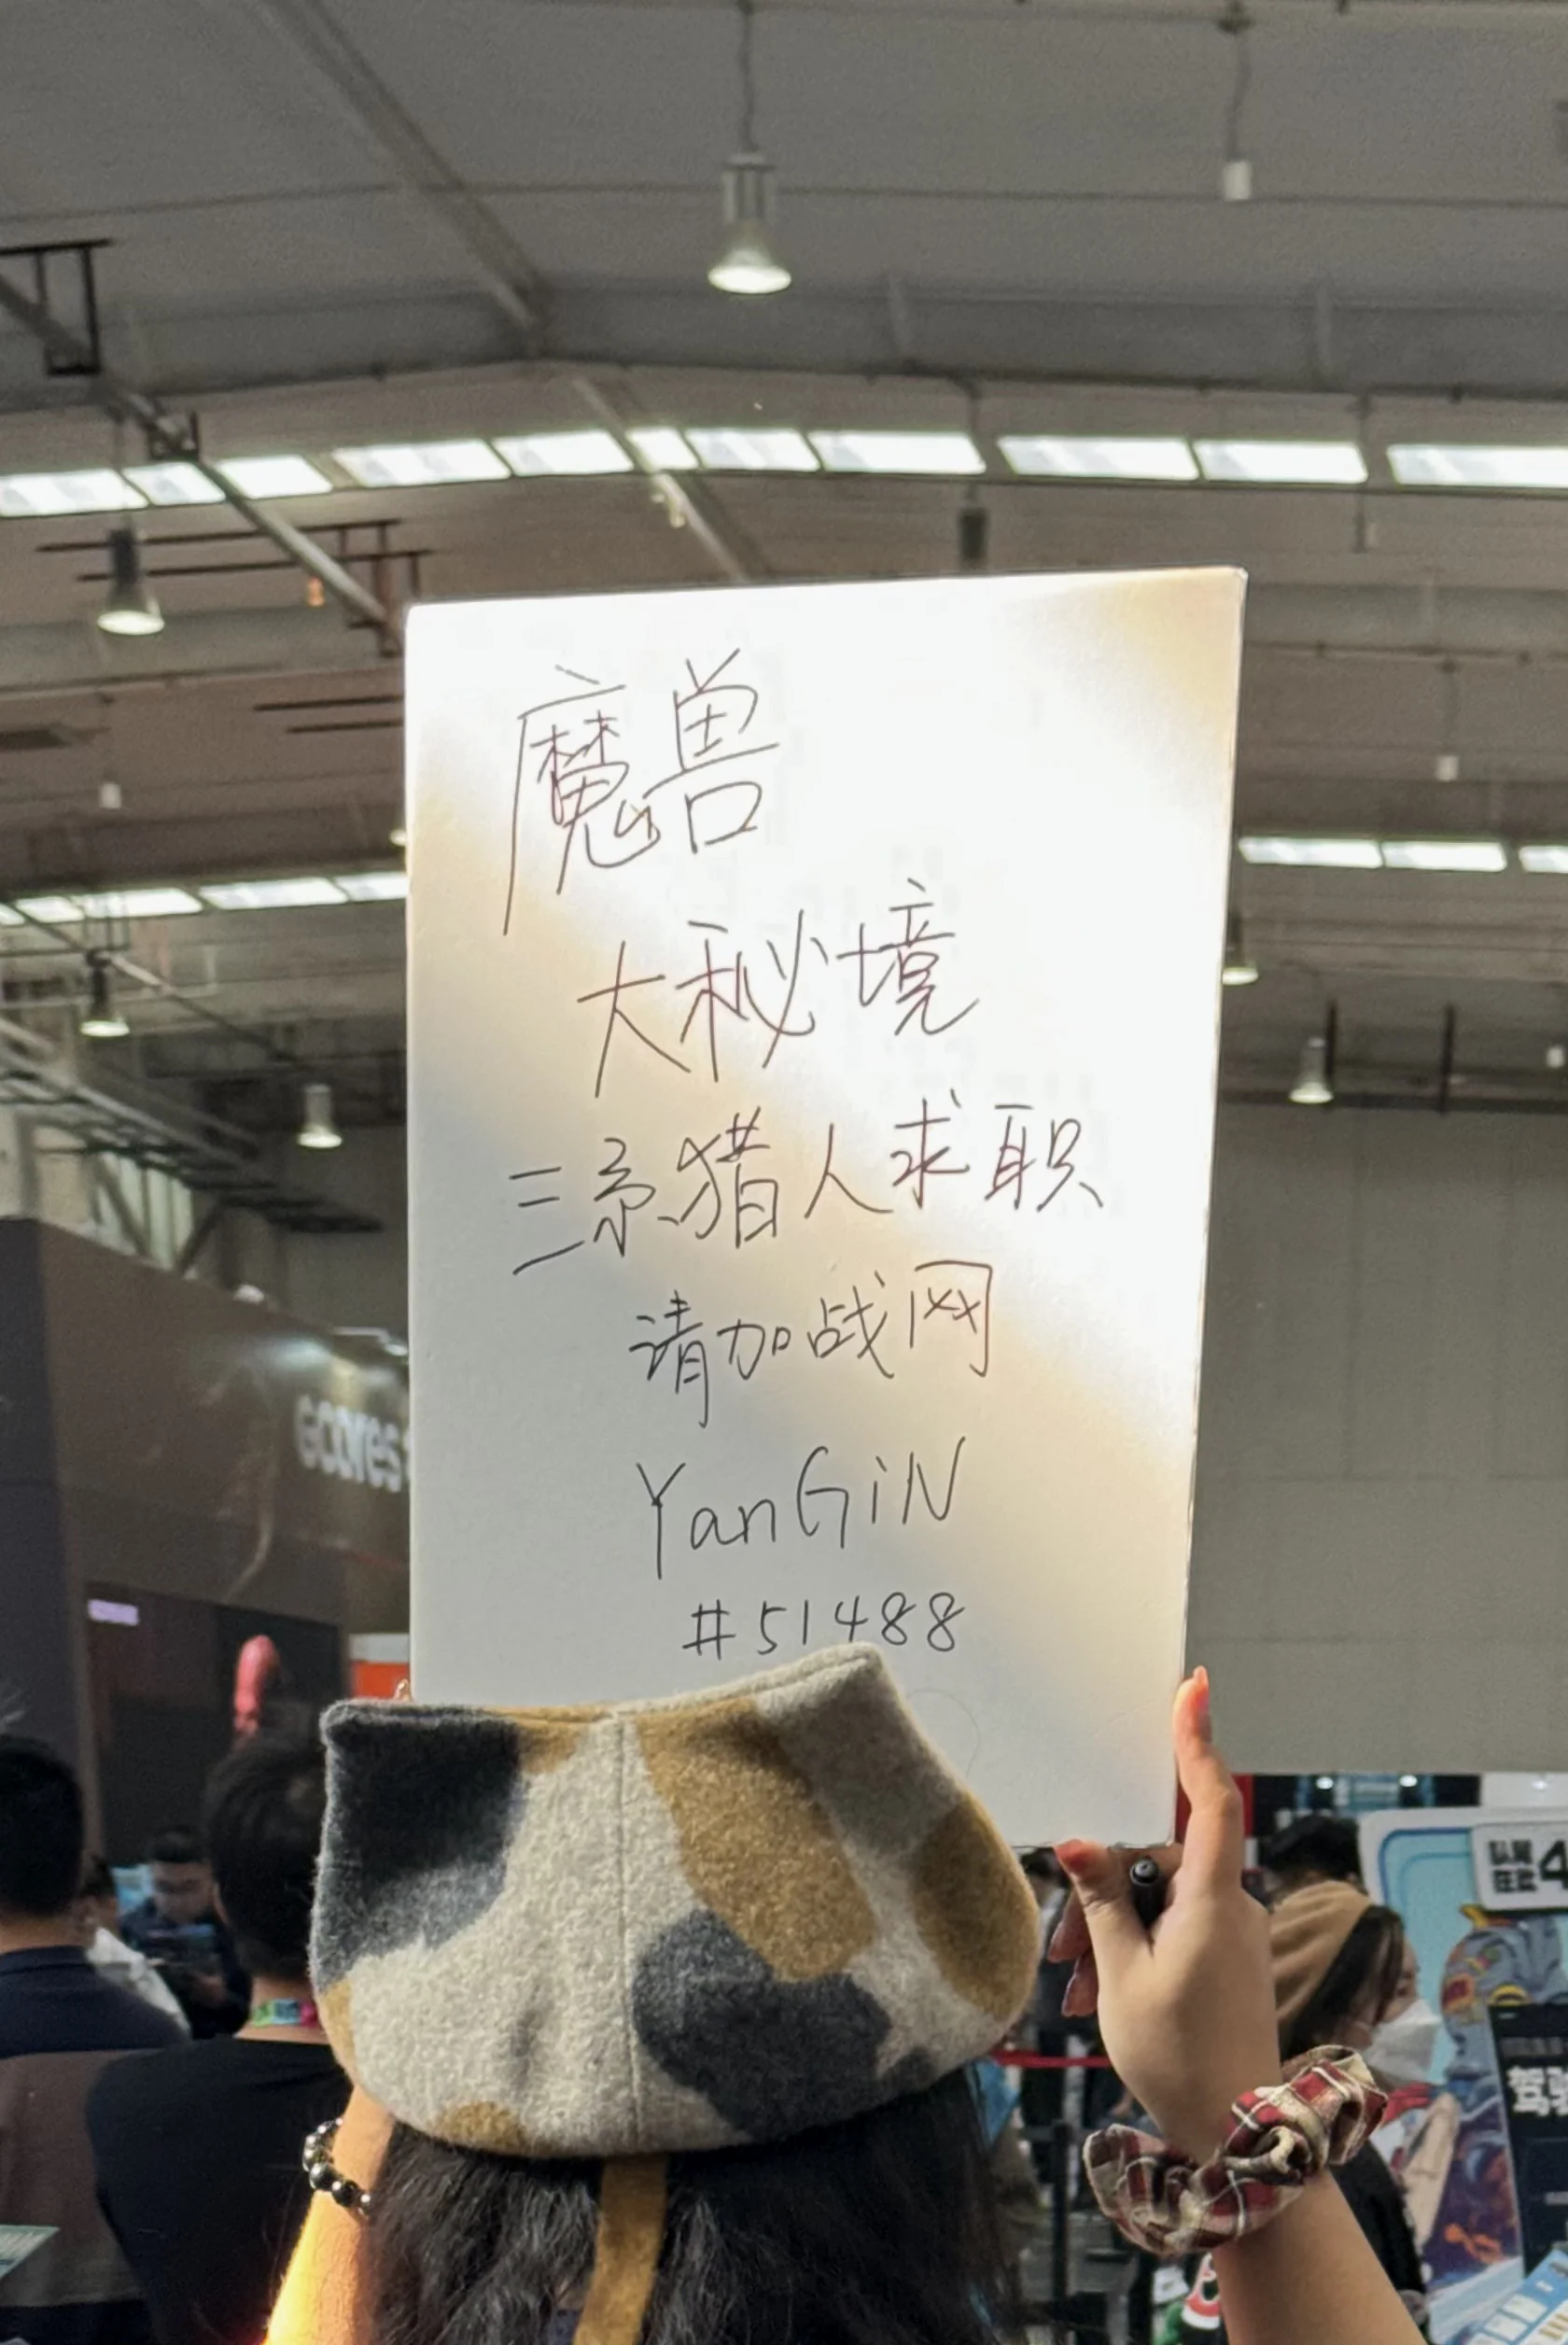 魔兽
大秘境
三系猎人求职
请加战网
YanGiN
#51488
gcores